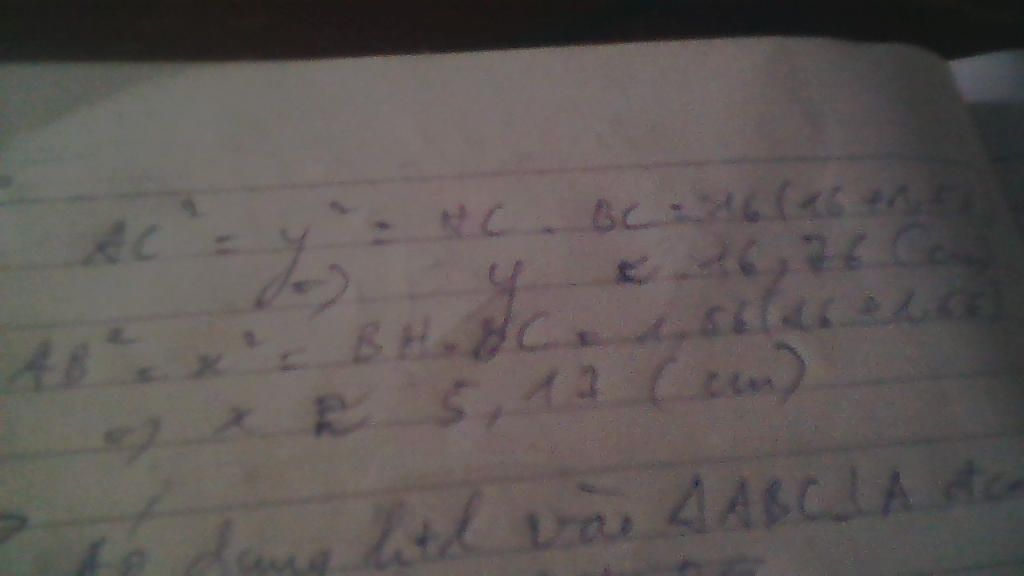 AC² = y² = HC . BC = 16(16 + 1,56)
=> y ≈ 16,76 (cm)
AB² = x² = BH . BC = 1,56(16 + 1,56)
=> x ≈ 5,17 (cm)
Áp dụng htl vào ΔABC⊥A